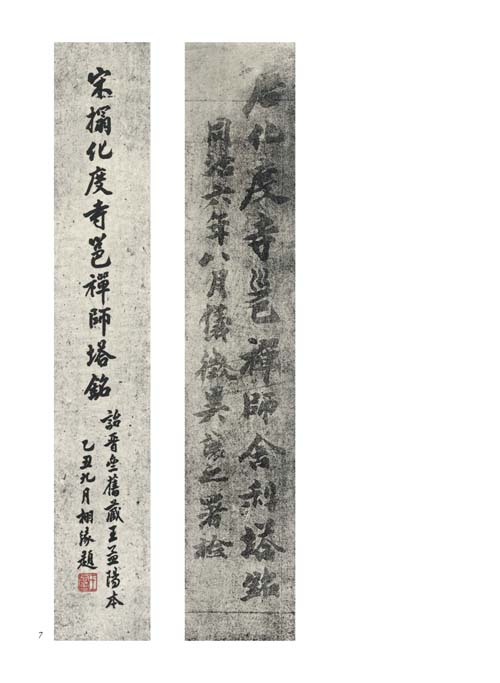 唐化度寺邕禪師舍利塔銘
同治六年八月儀徵吳讓之署檢
宋搨化度寺邕禪師塔銘
詒晉齋舊藏王孟陽本
乙丑九月相緣題
7